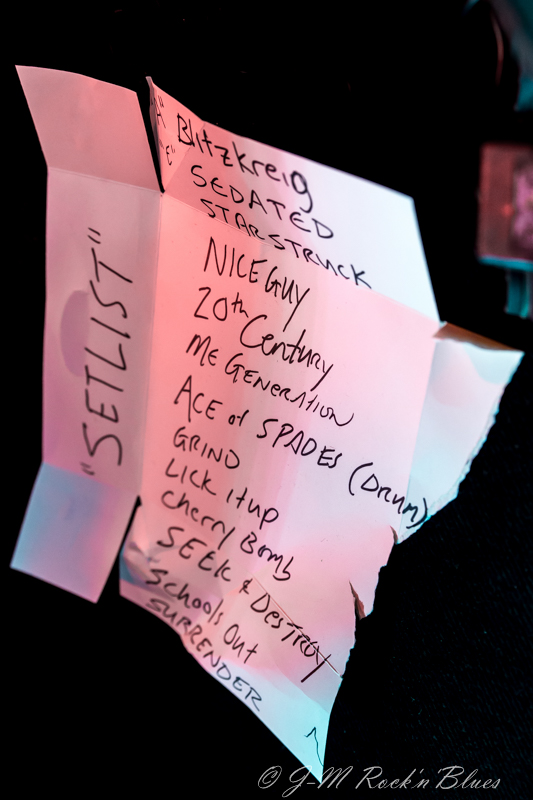 "SETLIST"
"A" Blitzkreig
"E" SEDATED
STARSTRUCK
NICE GUY
20th Century
ME GENERATION
ACE of SPADES (Drum)
GRIND
LICK it up
Cherry Bomb
SEEK & DESTROY
Schools Out
SURRENDER
© J-M Rock'n'Blues